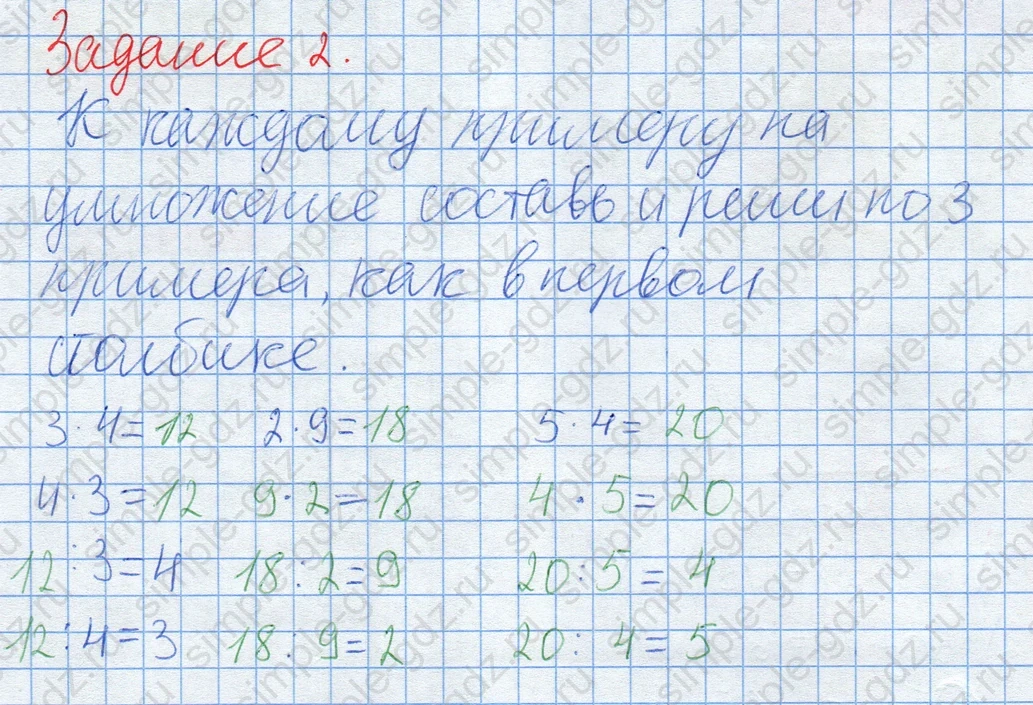 Задание 2.
К каждому примеру на
умножение составь и реши по 3
примера, как в первом
столбике.
3·4=12 2·9=18 5·4=20
4·3=12 9·2=18 4·5=20
12:3=4 18:2=9 20:5=4
12:4=3 18:9=2 20:4=5
simple-gdz.ru